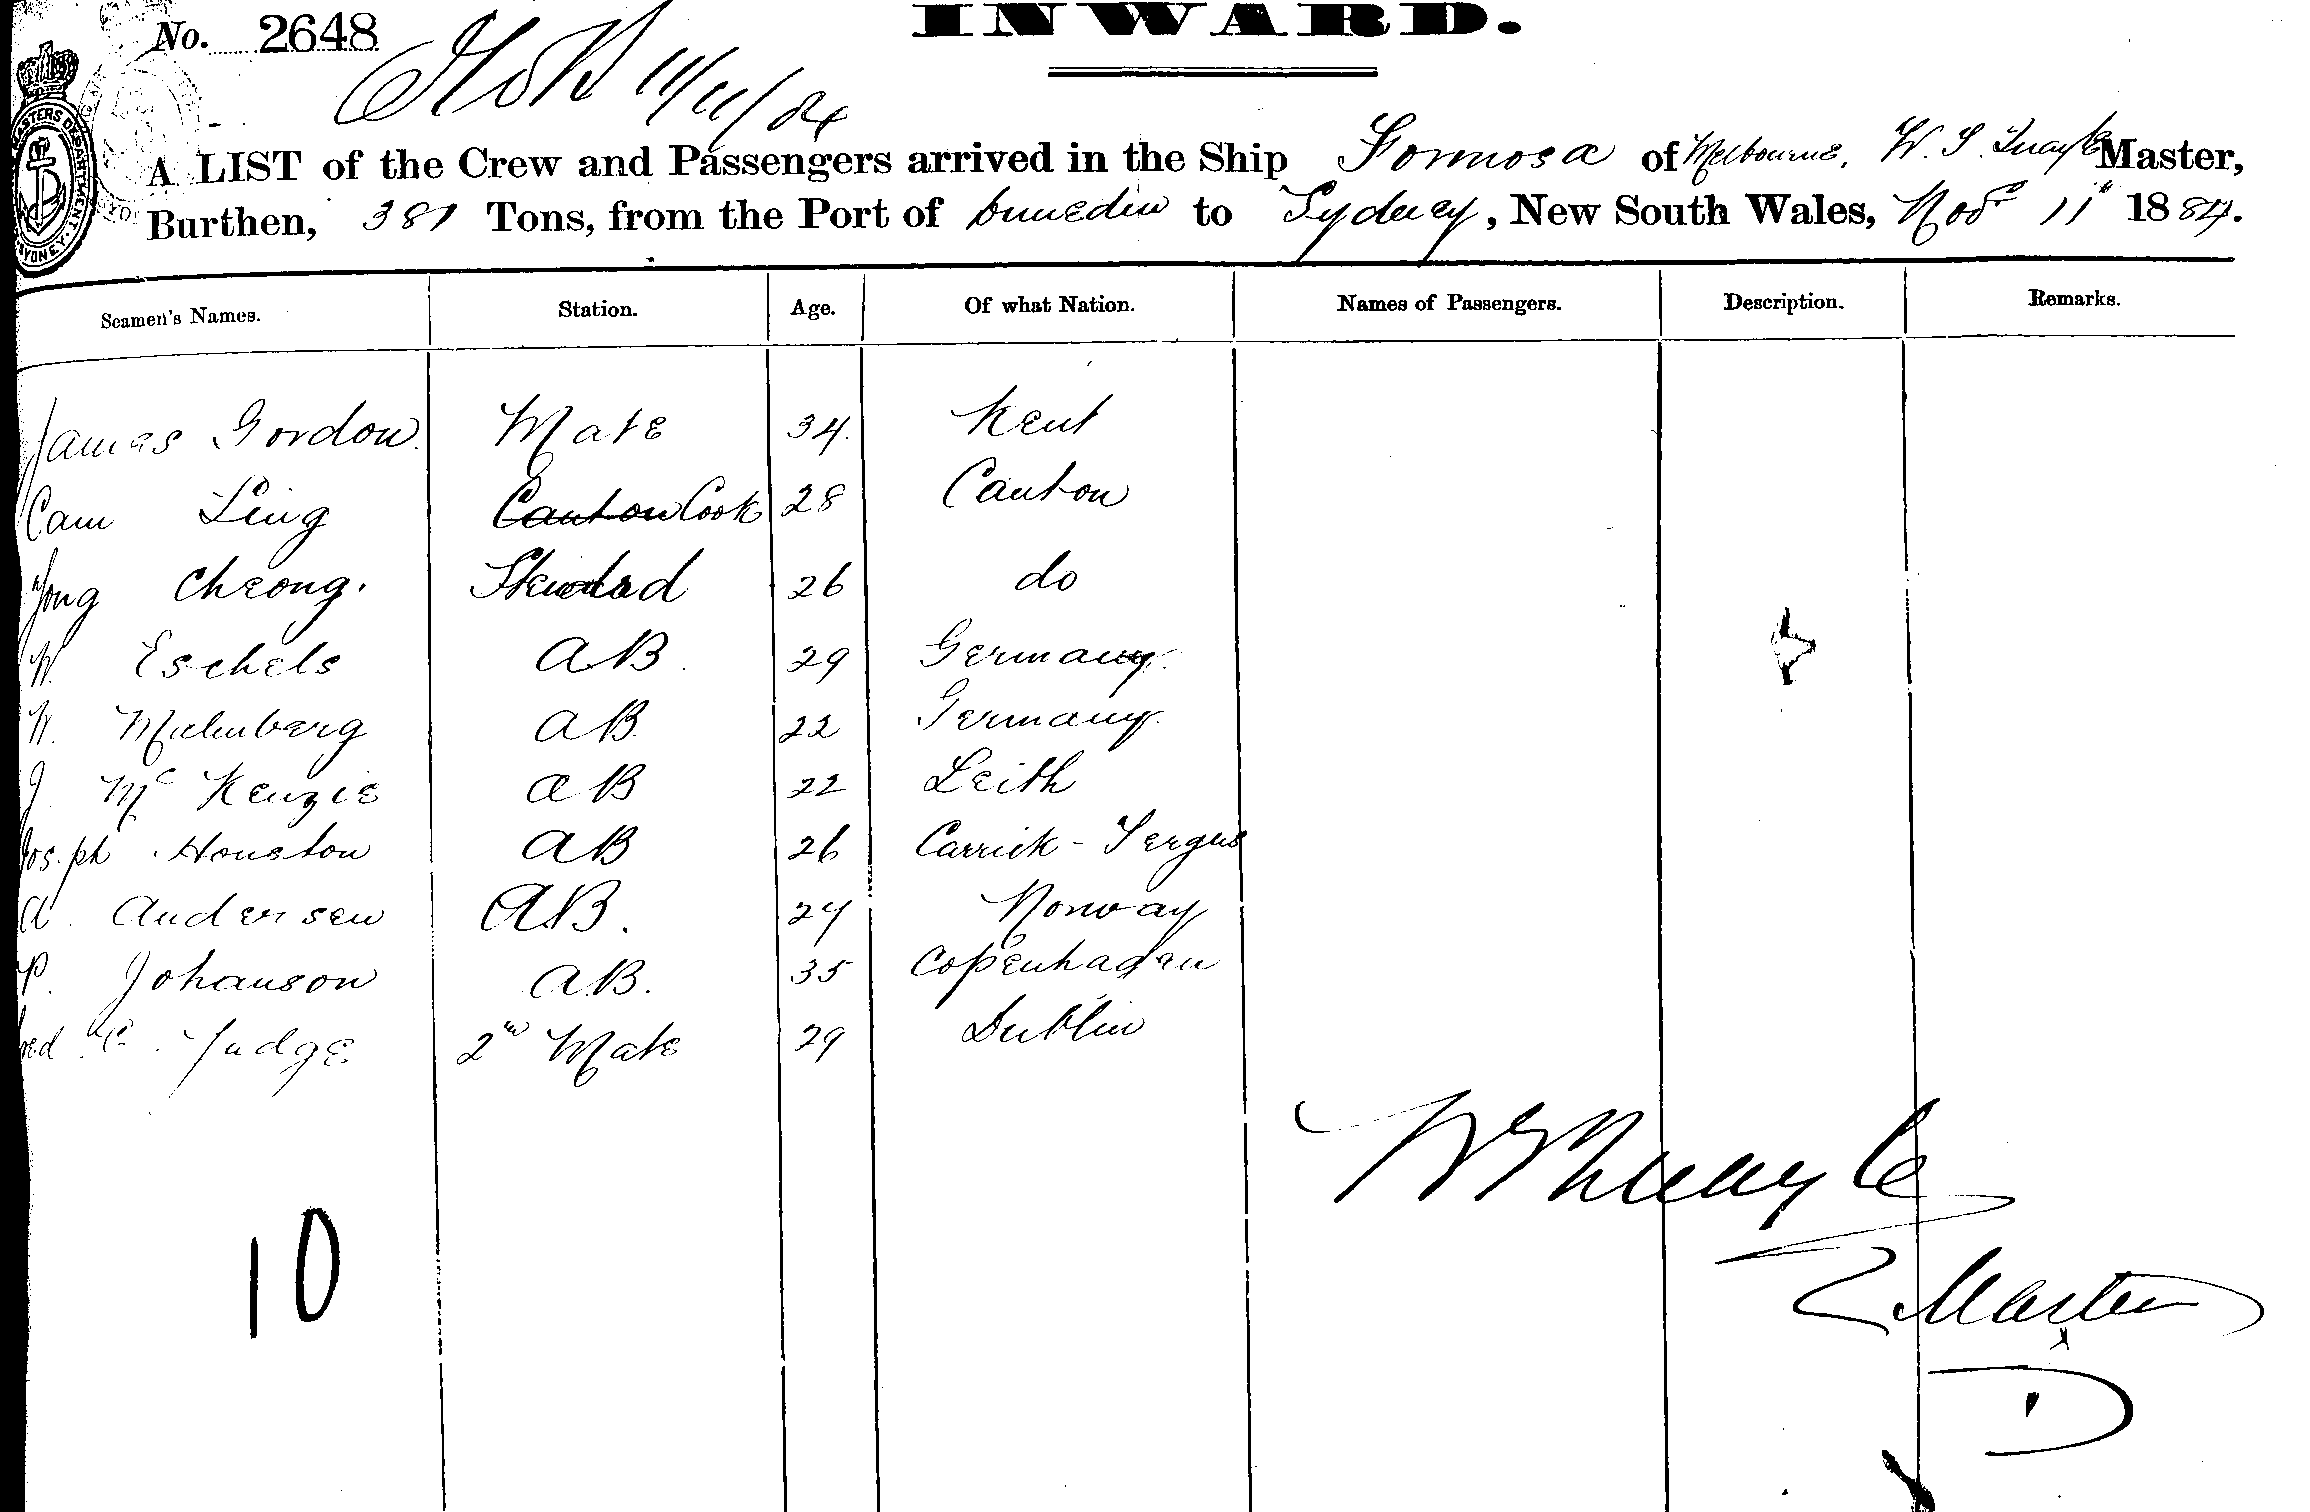 INWARD.
No. 2648
11/11/84
A LIST of the Crew and Passengers arrived in the Ship Formosa of Melbourne, W. S. Quayle Master,
Burthen, 381 Tons, from the Port of Dunedin to Sydney, New South Wales, Novr 11th 1884.
Seamen's Names. Station. Age. Of what Nation. Names of Passengers. Description. Remarks.
James Gordon. Mate 34. Kent
Cam Ling Canton Cook 28 Canton
Yong Cheong. Steward 26 do
W. Eschels AB. 29 Germany.
Malmberg AB. 22 Germany.
J. Mc Kenzie AB 22 Leith
Joseph Houston AB 26 Carrick-Fergus
A. Andersen AB. 24 Norway
P. Johanson AB. 35 Copenhagen
Judge 2nd Mate 29 Dublin
W S Quayle
10
Master
D